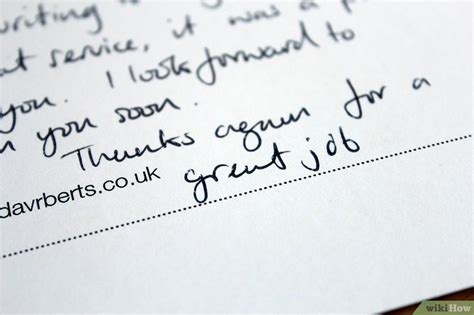 writing is
it was a
at service, it was a p
you. I look forward to
n you soon.
Thanks again for a
great job
davrberts.co.uk
wikiHow